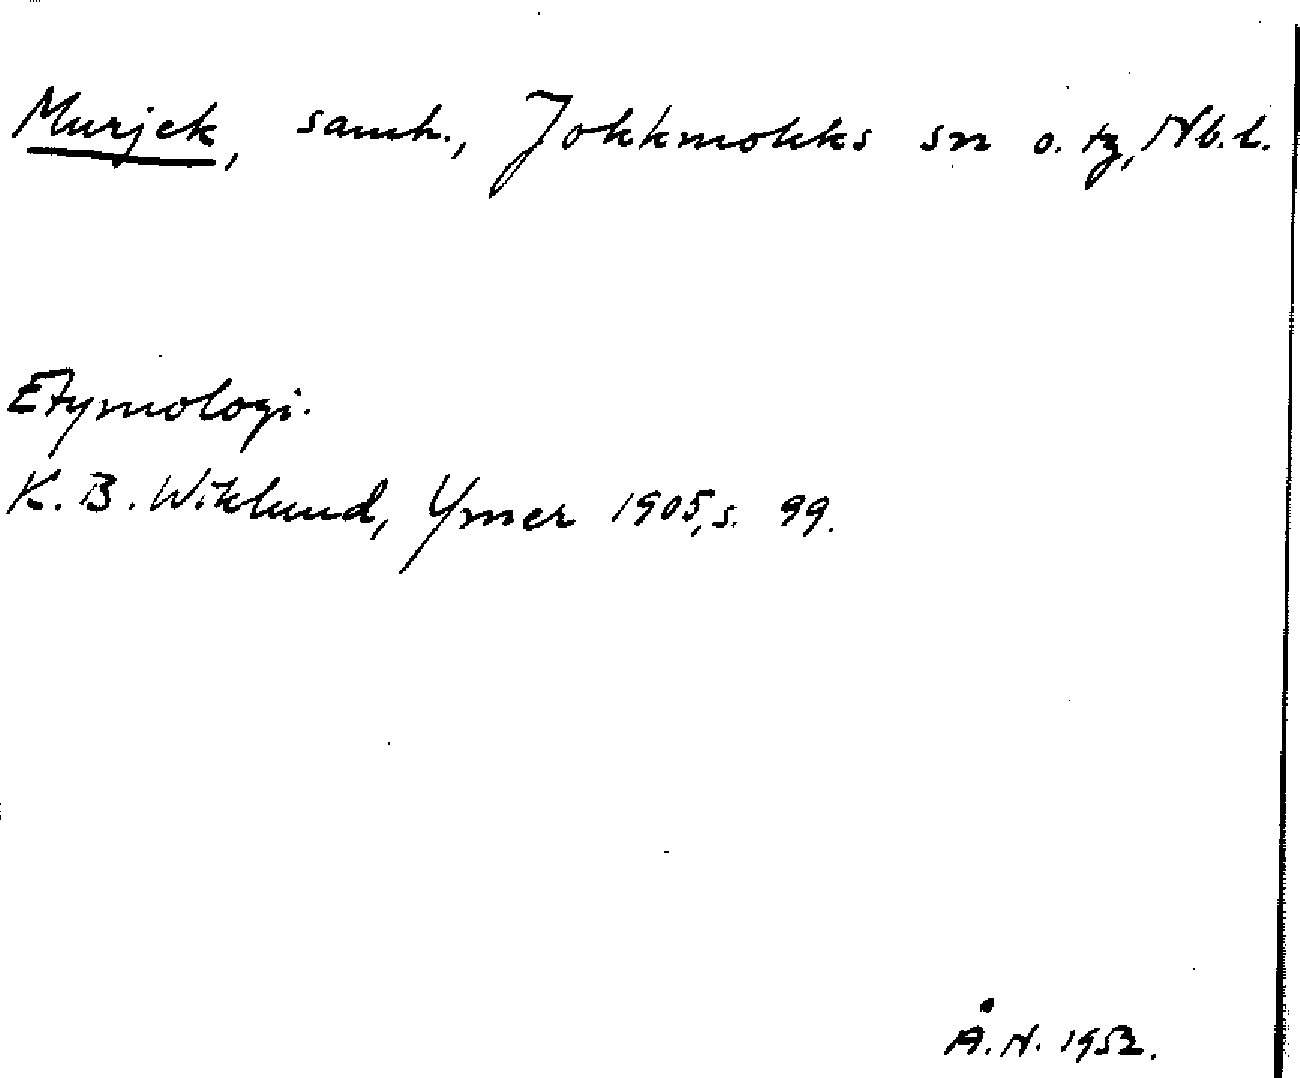 Murjek, samh., Jokkmokks sn o. tg, Nb. l.
Etymologi.
K. B. Wiklund, Ymer 1905, s. 99.
Å. N. 1952.